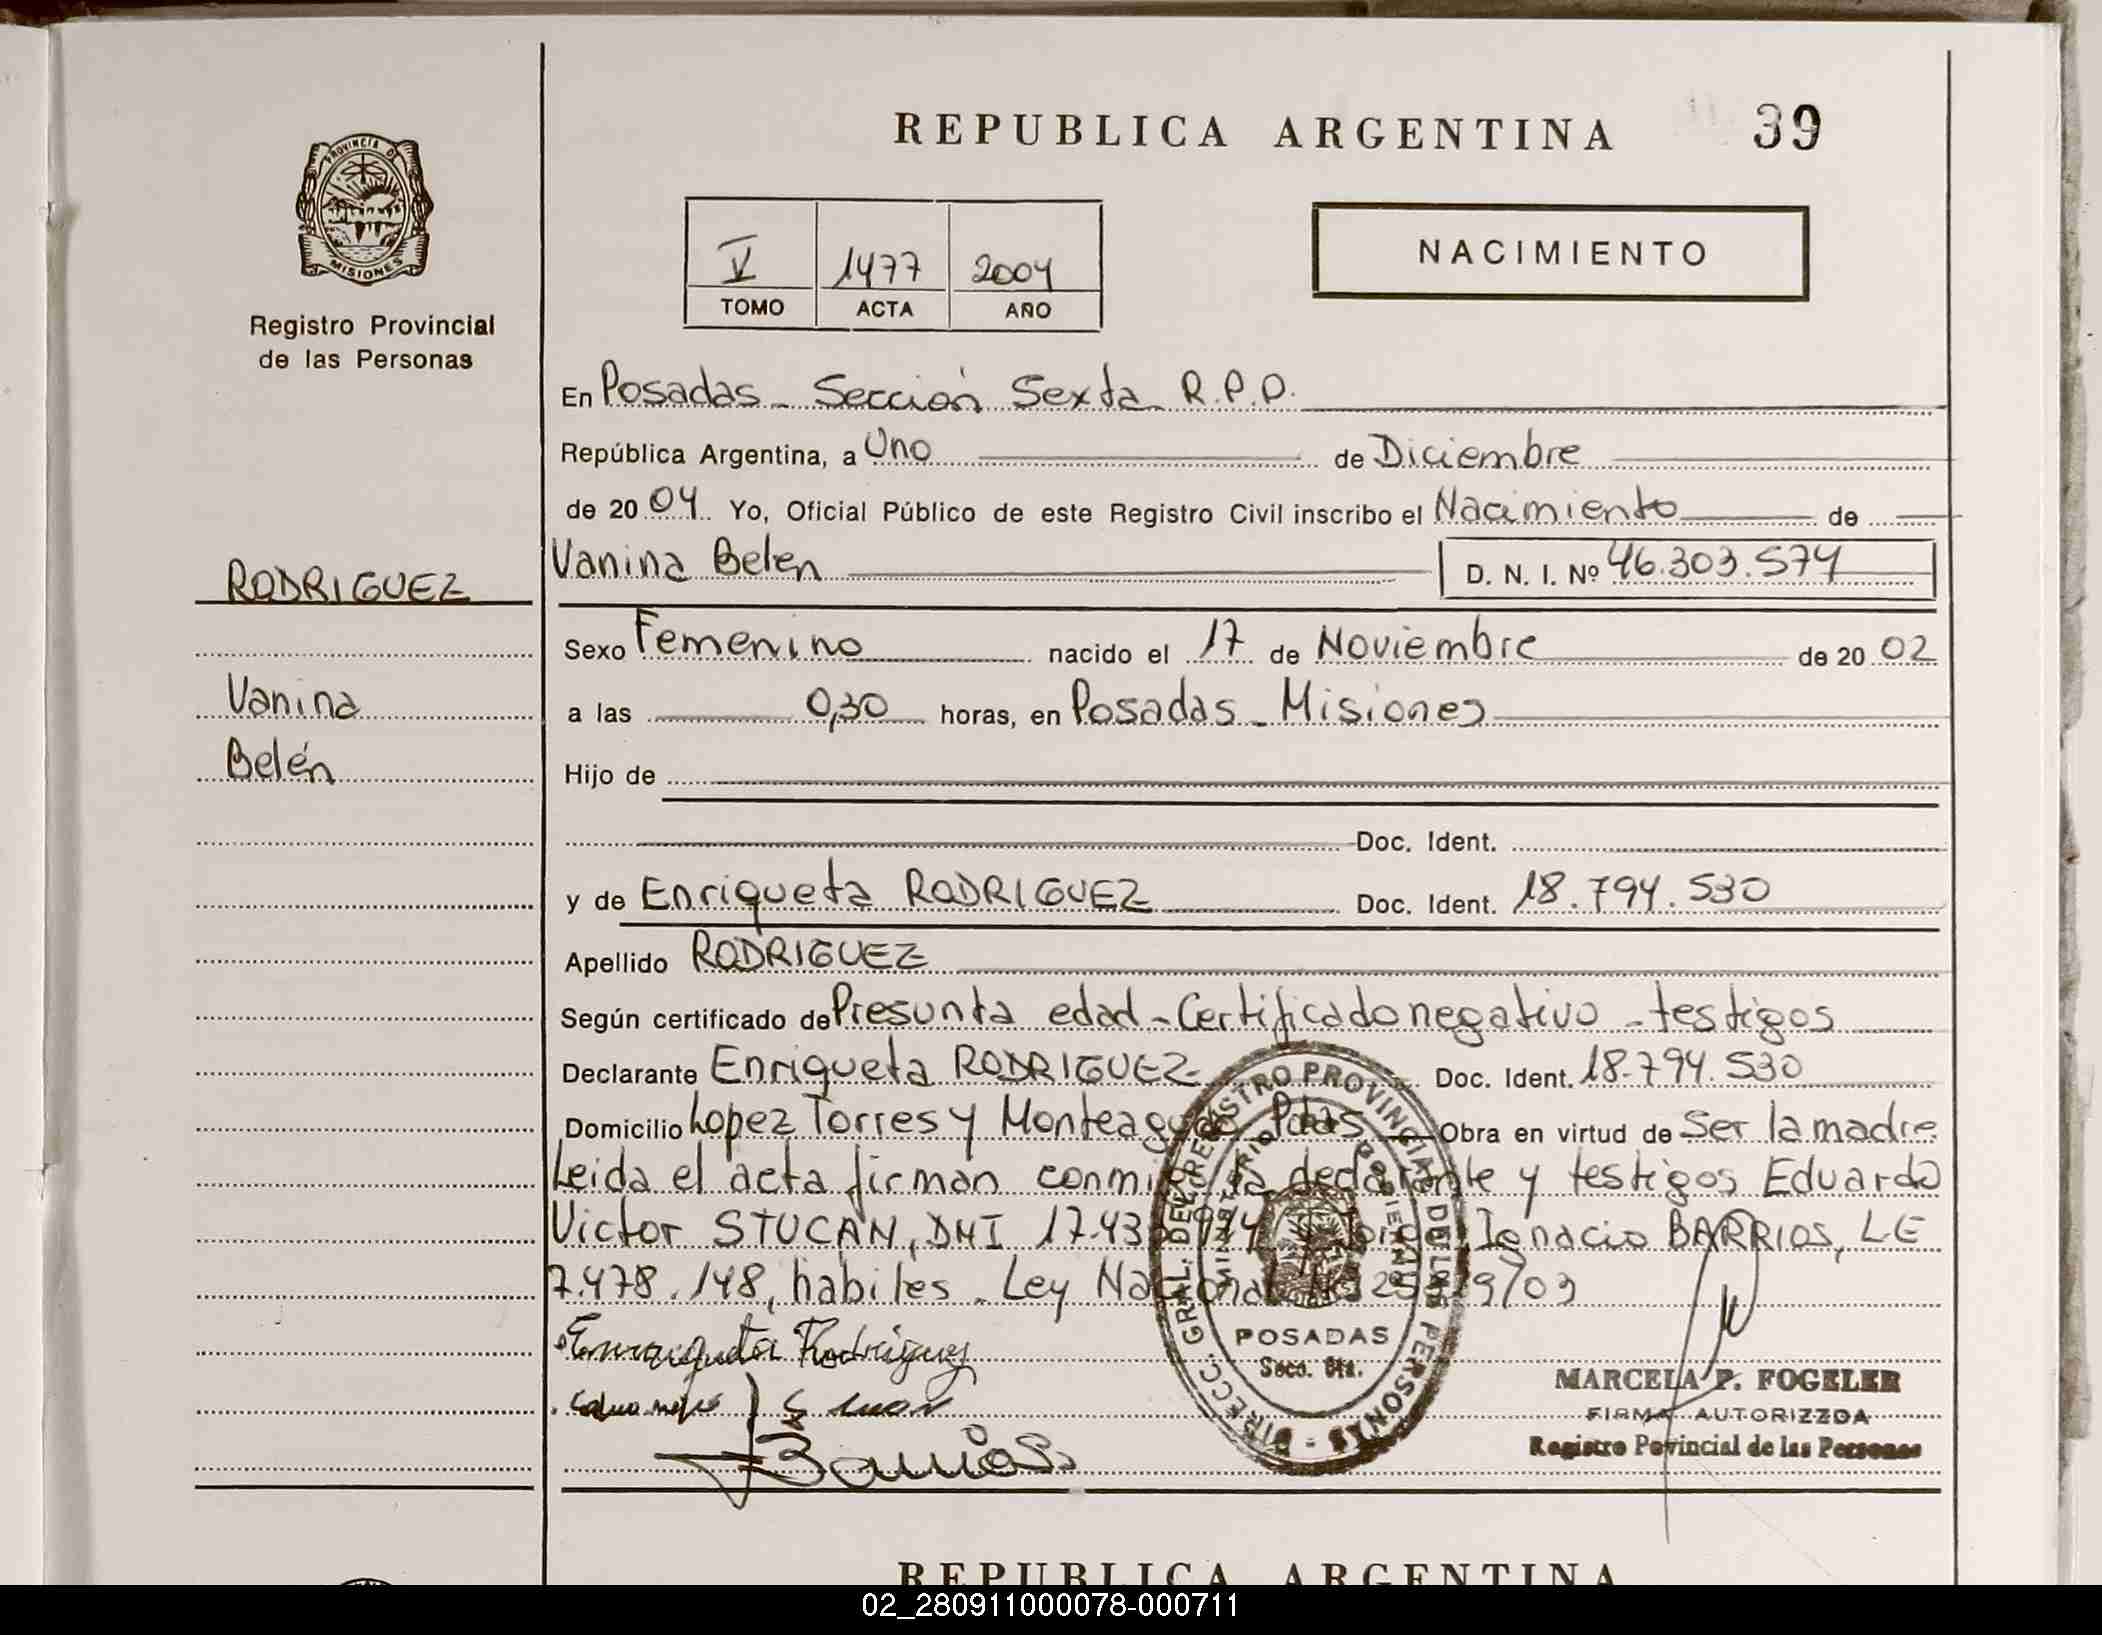 REPUBLICA ARGENTINA 39
PROVINCIA DE
MISIONES
Registro Provincial
de las Personas
V 1477 2004
TOMO ACTA AÑO
NACIMIENTO
En Posadas - Sección Sexta R.P.P.
República Argentina, a Uno de Diciembre
de 2004. Yo, Oficial Público de este Registro Civil inscribo el Nacimiento de
Vanina Belen D. N. I. Nº 46.303.574
RODRIGUEZ
Sexo Femenino nacido el 17 de Noviembre de 2002
Vanina
a las 0,30 horas, en Posadas - Misiones
Belén
Hijo de
Doc. Ident.
y de Enriqueta RODRIGUEZ Doc. Ident. 18.794.530
Apellido RODRIGUEZ
Según certificado de Presunta edad - Certificado negativo - testigos
Declarante Enriqueta RODRIGUEZ - Doc. Ident. 18.794.530
Domicilio Lopez Torres y Monteagudo Pdas Obra en virtud de Ser la madre
Leida el acta firman conmigo la declarante y testigos Eduardo
Victor STUCAN, DNI Jorge Ignacio BARRIOS, LE
7.478.148, habiles. Ley Nacional
Enriqueta Rodriguez
Barrios
DIRECC. GRAL. DEL REGISTRO PROVINCIAL DE LAS PERSONAS
MINISTERIO DE GOBIERNO
POSADAS
Secc. 6ta.
MARCELA P. FOGELER
FIRMA AUTORIZZDA
Registro Povincial de las Personas
REPUBLICA ARGENTINA
02_280911000078-000711